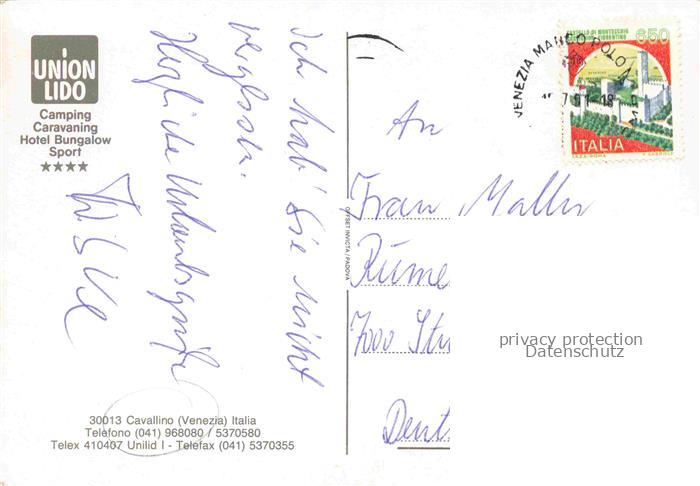 UNION
LIDO
Camping
Caravaning
Hotel Bungalow
Sport
★★★★
Ich hab' Sie nicht
vergessen.
Herzliche Urlaubsgrüße
30013 Cavallino (Venezia) Italia
Telefono (041) 968080 / 5370580
Telex 410407 Unilid I - Telefax (041) 5370355
OFFSET INVICTA / PADOVA
VENEZIA MARCO POLO
CASTELLO DI MONTECCHIO
650
ITALIA
An
Frau
7000
privacy protection
Datenschutz